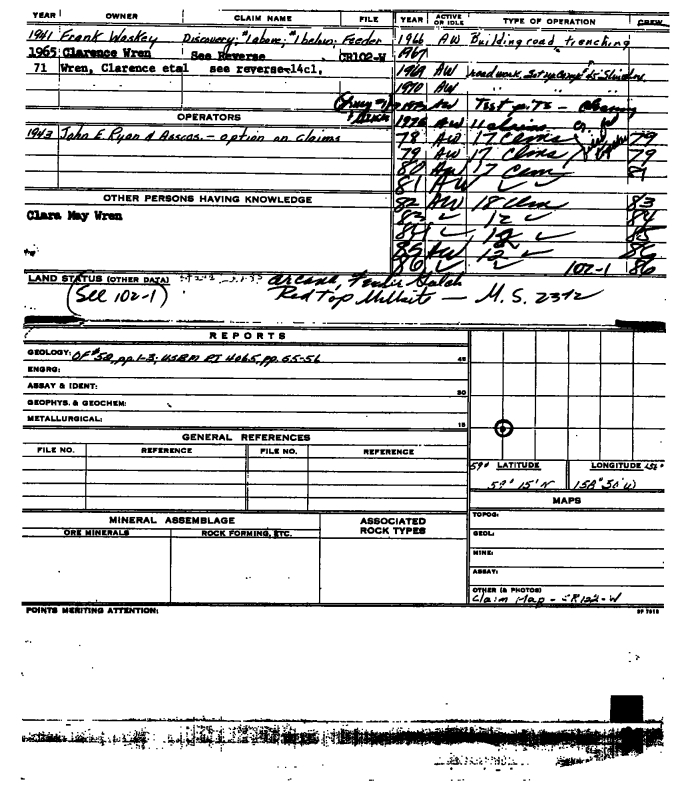 YEAR OWNER CLAIM NAME FILE
1941 Frank Waskey Discovery; #1 above; #1 below; Feeder
1965 Clarence Wren See Reverse CR102-W
71 Wren, Clarence etal see reverse-14cl.
OPERATORS
1943 John E Ryan & Assocs. - option on claims
OTHER PERSONS HAVING KNOWLEDGE
Clara May Wren
YEAR ACTIVE OR IDLE TYPE OF OPERATION CREW
1966 AW Building road trenching
1967
1969 AW road work,
1970 AW " "
AW Test pits -
1976 AW 11 claims
78 AW 17 Clms 79
79 AW 17 Clms 79
80 AW 17 Clm 81
81 AW ✓ ✓
82 AW 18 Clm 83
83 ✓ 12 ✓ 84
84 ✓ 12 ✓ 85
85 AW 12 ✓ 86
86 ✓ ✓ 102-1 86
LAND STATUS (OTHER DATA)
(See 102-1)
Arcana, Gulch
Red Top Millsite - M.S. 2342
REPORTS
GEOLOGY: OF #50, pp. 1-3; USBM RI 4065, pp. 55-56 45
ENGRG:
ASSAY & IDENT: 30
GEOPHYS. & GEOCHEM:
METALLURGICAL: 15
GENERAL REFERENCES
FILE NO. REFERENCE FILE NO. REFERENCE
MINERAL ASSEMBLAGE
ORE MINERALS ROCK FORMING, ETC.
ASSOCIATED ROCK TYPES
59° LATITUDE LONGITUDE
59° 15' N 158° 30' W
MAPS
TOPOG:
GEOL:
MINE:
ASSAY:
OTHER (& PHOTOS)
Claim Map -
POINTS MERITING ATTENTION: